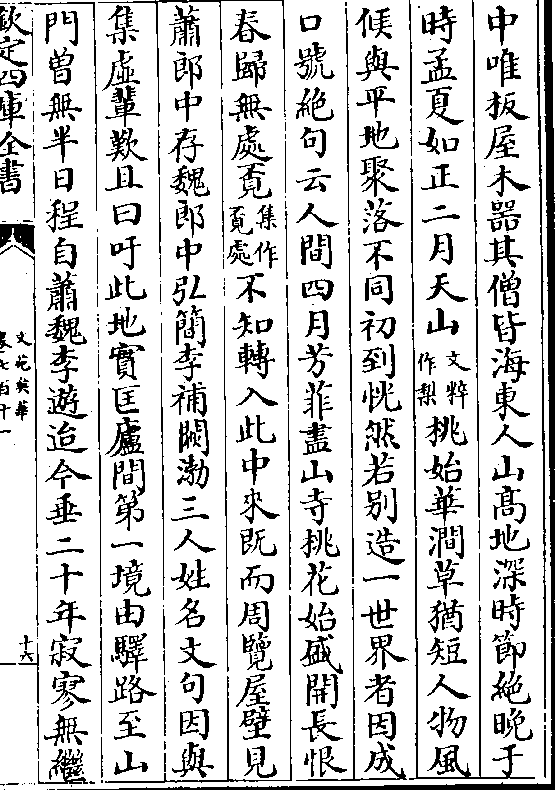 中唯板屋木器其僧皆海東人山髙地深時節絶晚于
時孟夏如正二月天山文粹作梨桃始華澗草猶短人物風
候與平地聚落不同初到恍然若別造一世界者因成
口號絶句云人間四月芳菲盡山寺桃花始盛開長恨
春歸無處覔集作覔處不知轉入此中來既而周覽屋壁見
蕭郎中存魏郎中弘簡李補闕渤三人姓名文句因與
集虛輩歎且曰吁此地實匡廬間第一境由驛路至山
門曽無半日程自蕭魏李遊迨今垂二十年寂寥無繼
欽定四庫全書
文苑英華
卷七百十一
十六